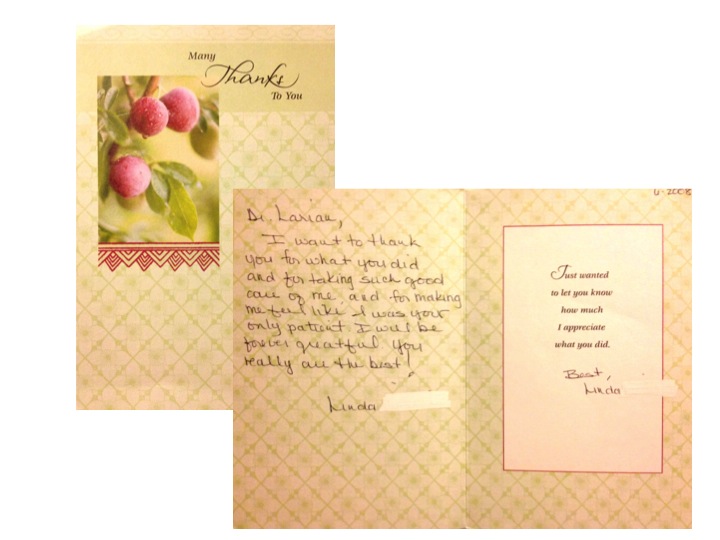 Many
Thanks
To You
6-2008
Dr. Larian,
I want to thank
you for what you did
and for taking such good
care of me, and for making
me feel like I was your
only patient I will be
forever greatful you
really are the best!
Linda
Just wanted
to let you know
how much
I appreciate
what you did.
Best,
Linda